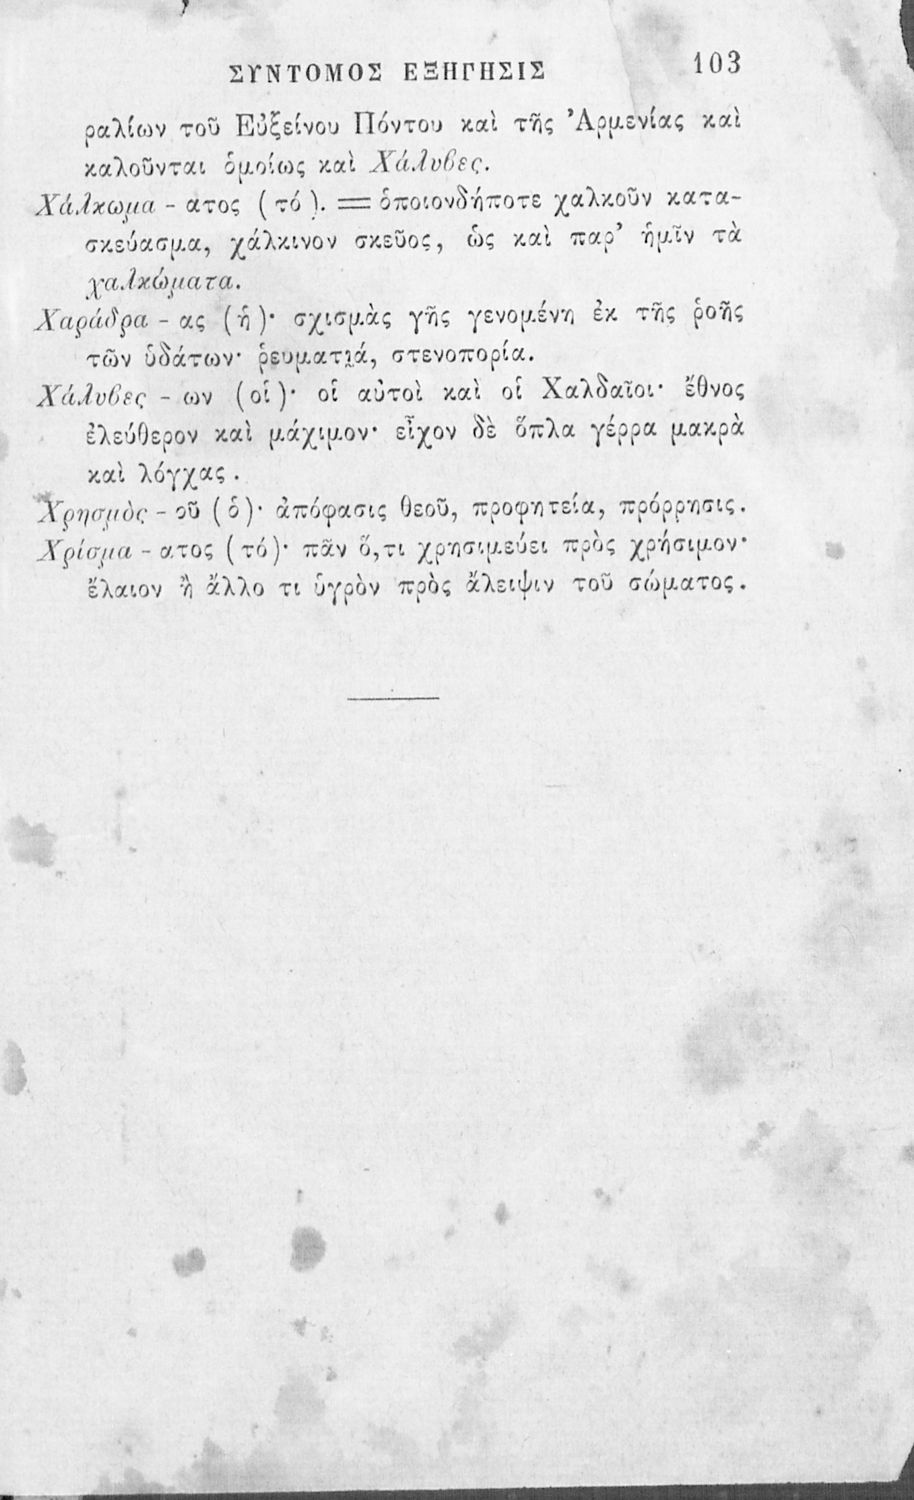 ΣΥΝΤΟΜΟΣ ΕΞΗΓΗΣΙΣ 103
ραλίων τοῦ Εὐξείνου Πόντου καὶ τῆς Ἀρμενίας καὶ
καλοῦνται ὁμοίως καὶ Χάλυβες.
Χάλκωμα - ατος (τό). = ὁποιονδήποτε χαλκοῦν κατα-
σκεύασμα, χάλκινον σκεῦος, ὡς καὶ παρ’ ἡμῖν τὰ
χαλκώματα.
Χαράδρα - ας (ἡ)· σχισμὰς γῆς γενομένη ἐκ τῆς ῥοῆς
τῶν ὑδάτων· ῥευματιά, στενοπορία.
Χάλυβες - ων (οἱ)· οἱ αὐτοὶ καὶ οἱ Χαλδαῖοι· ἔθνος
ἐλεύθερον καὶ μάχιμον· εἶχον δὲ ὅπλα γέρρα μακρὰ
καὶ λόγχας.
Χρησμὸς - οῦ (ὁ)· ἀπόφασις θεοῦ, προφητεία, πρόρρησις.
Χρίσμα - ατος (τό)· πᾶν ὅ,τι χρησιμεύει πρὸς χρήσιμον·
ἔλαιον ἢ ἄλλο τι ὑγρὸν πρὸς ἄλειψιν τοῦ σώματος.